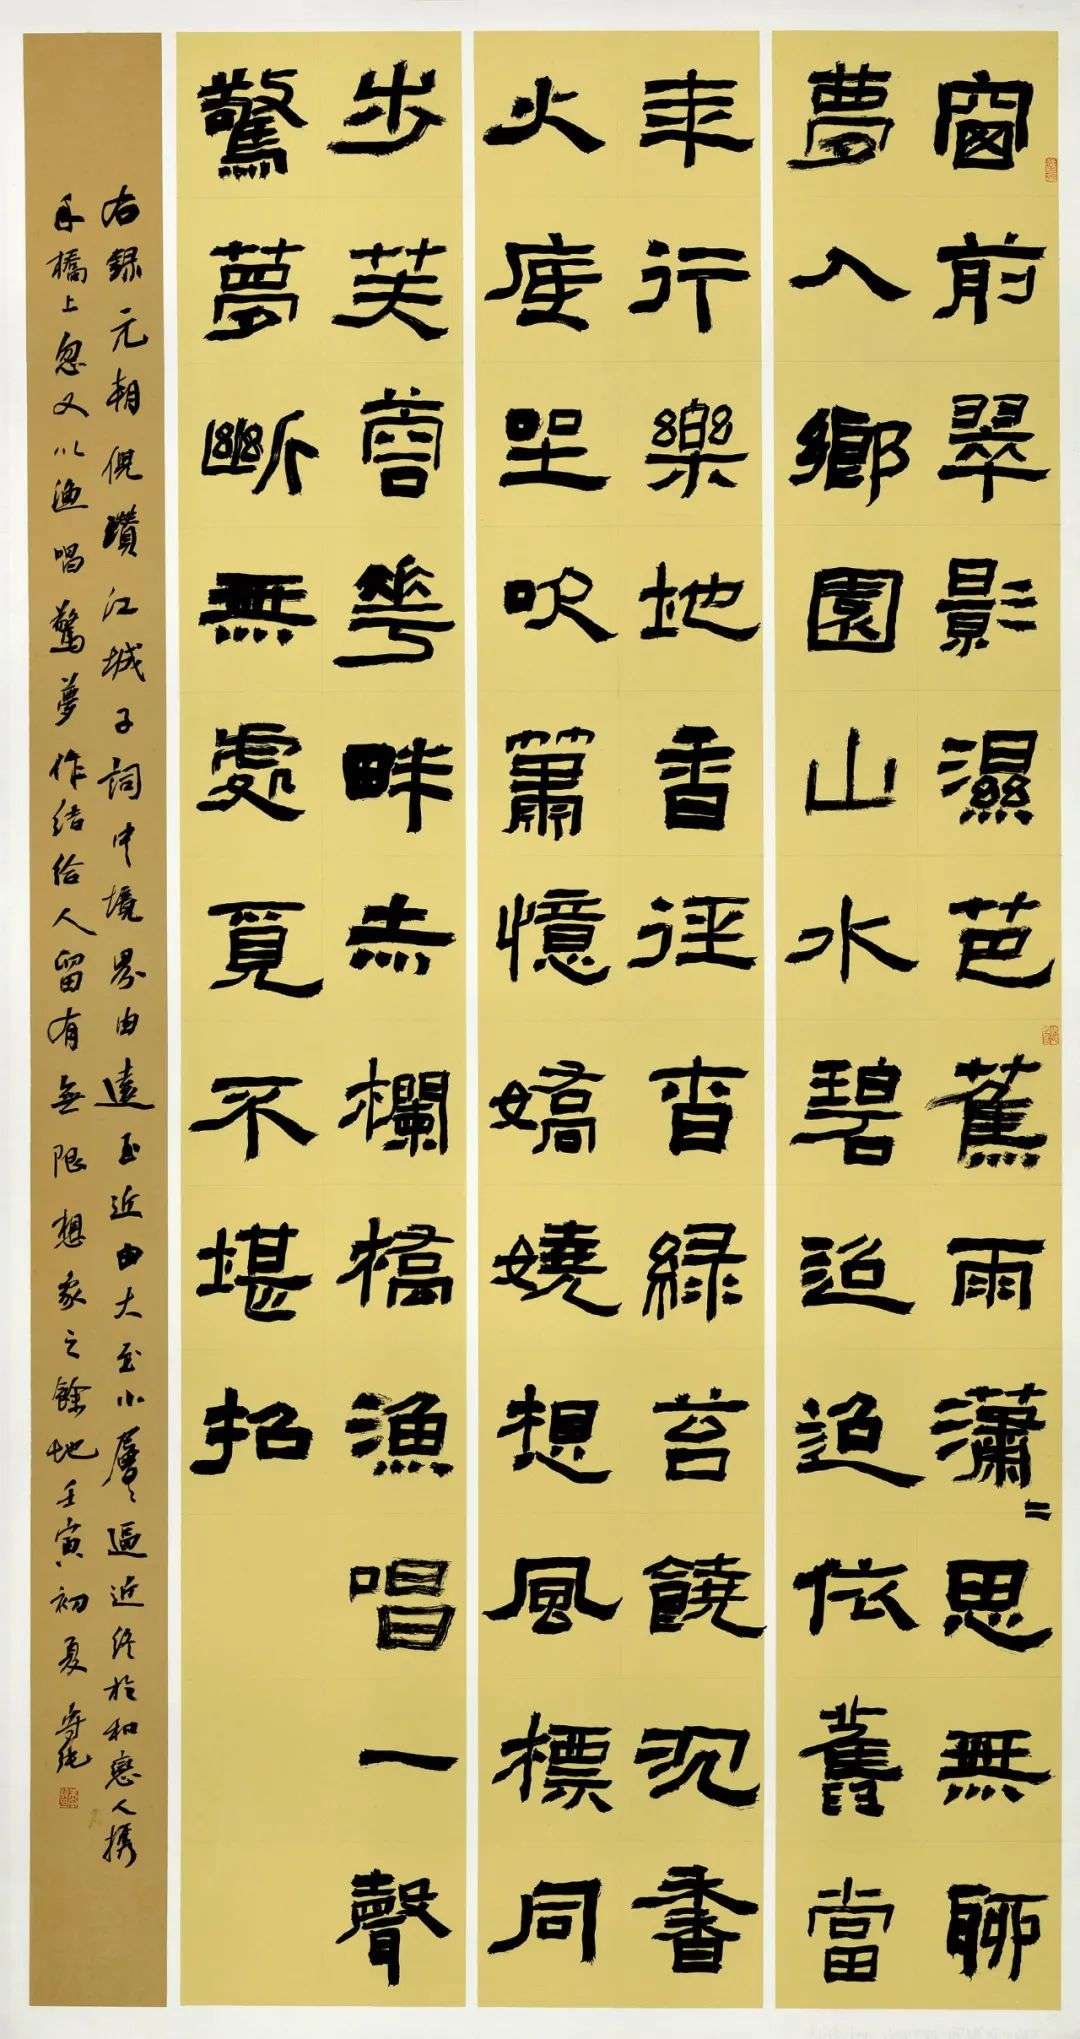 窗前翠影濕芭蕉雨瀟〻思無聊
夢入鄉園山水碧迢迢依舊當
年行樂地香徑杳綠苔饒沉香
火底坐吹簫憶嬌嬈想風標同
步芙蓉花畔赤欄橋漁唱一聲
驚夢斷無處覓不堪招
右錄元朝倪瓚江城子詞中境界由遠至近由大至小層〻逼近終於和戀人攜
手橋上忽又以漁唱驚夢作結給人留有無限想象之餘地壬寅初夏